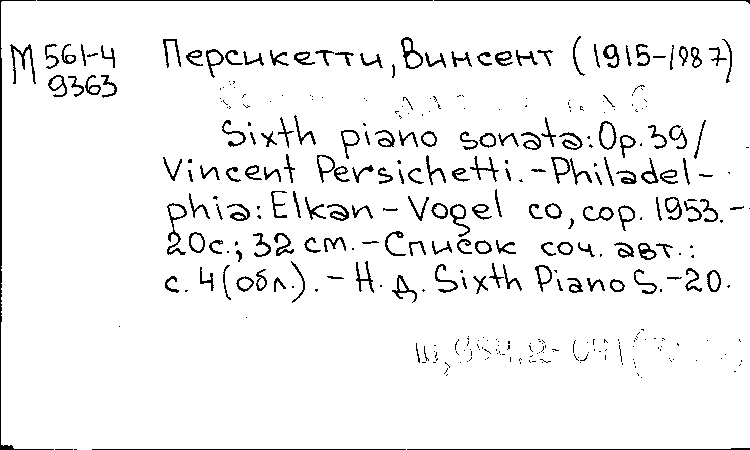 М 561-4
9363
Персикетти, Винсент (1915-1987)
Sixth piano sonata: Op. 39/
Vincent Persichetti. - Philadel-
phia: Elkan - Vogel co, cop. 1953. -
20с.; 32 cm. - Список соч. авт.:
с. 4 (обл.). - Н. д. Sixth Piano S. - 20.